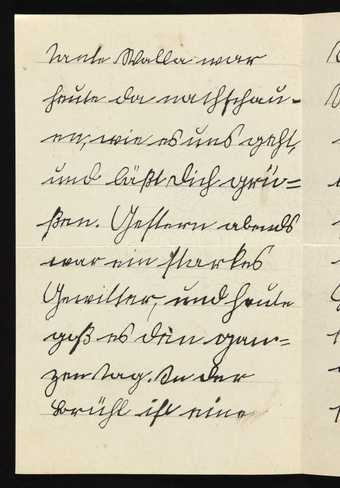 Tante Walla war
heute da nachschau-
en, wie es uns geht,
und läßt Dich grü=
ßen. Gestern abends
war ein starkes
Gewitter, und heute
goß es den gan=
zen Tag. In der
Brühl ist eine